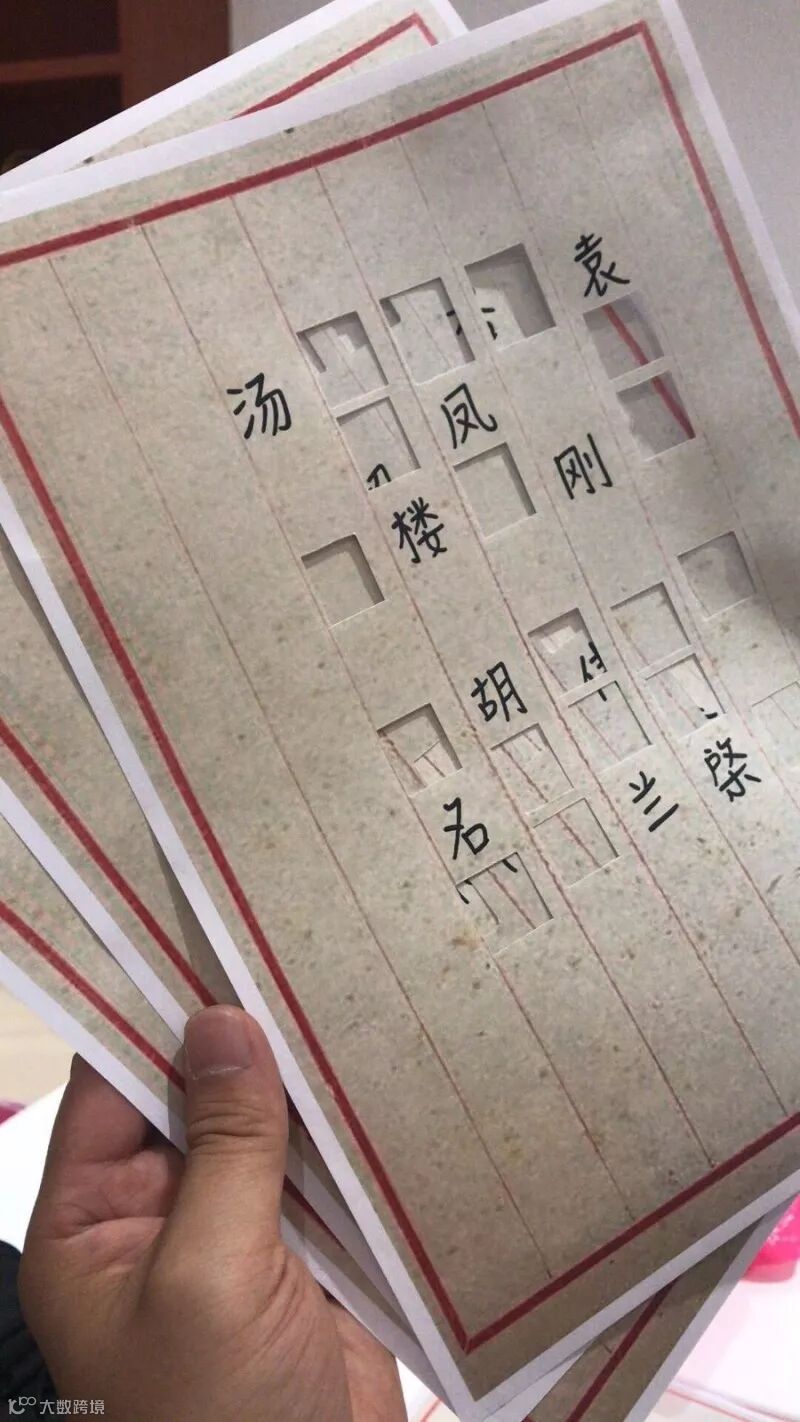 袁
刚棨
凤兰
楼胡
汤名
大数跨境